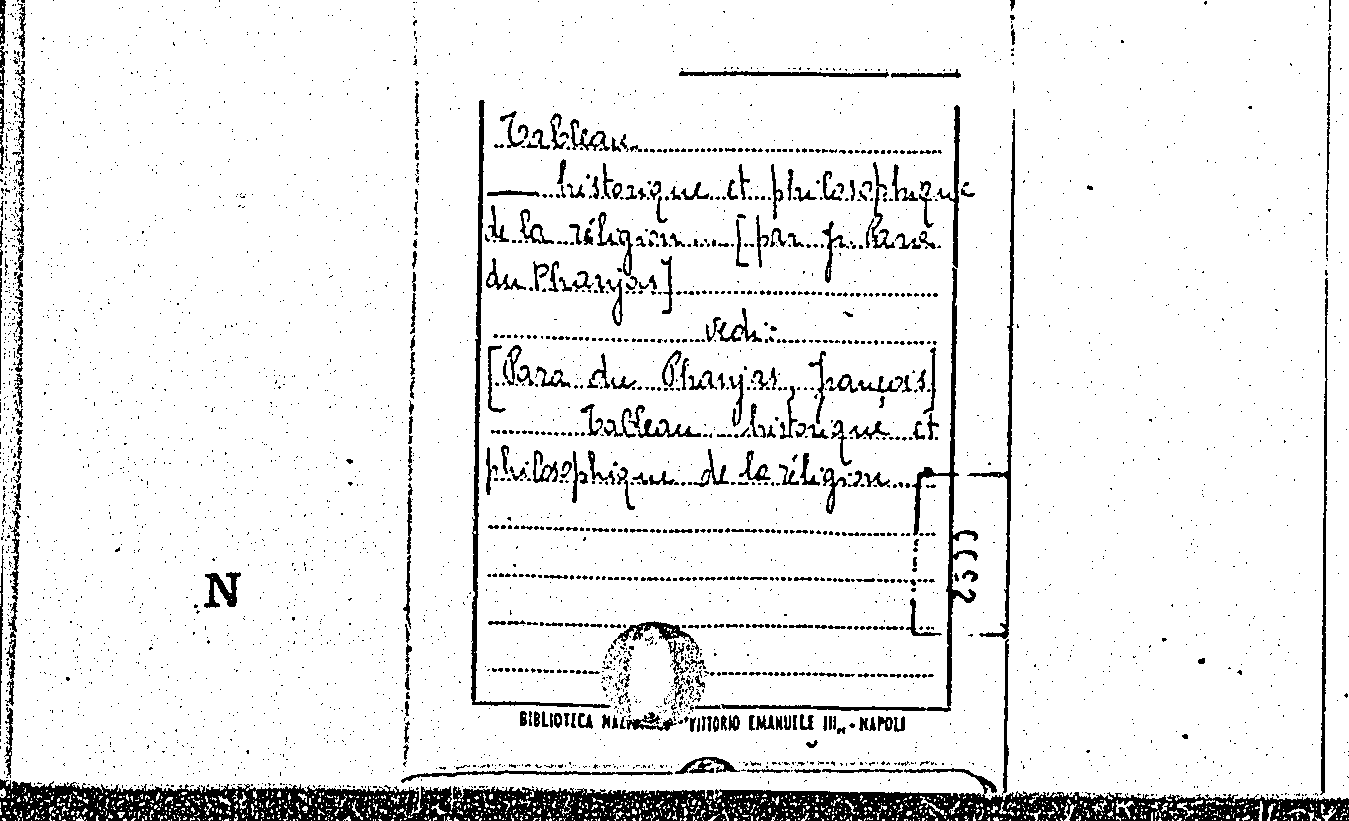 Tableau
— historique et philosophique
de la réligion... [par f. Para
du Phanjas]
vedi:
[Para du Phanjas, François]
Tableau historique et
philosophique de la réligion
N
BIBLIOTECA "VITTORIO EMANUELE III" - NAPOLI